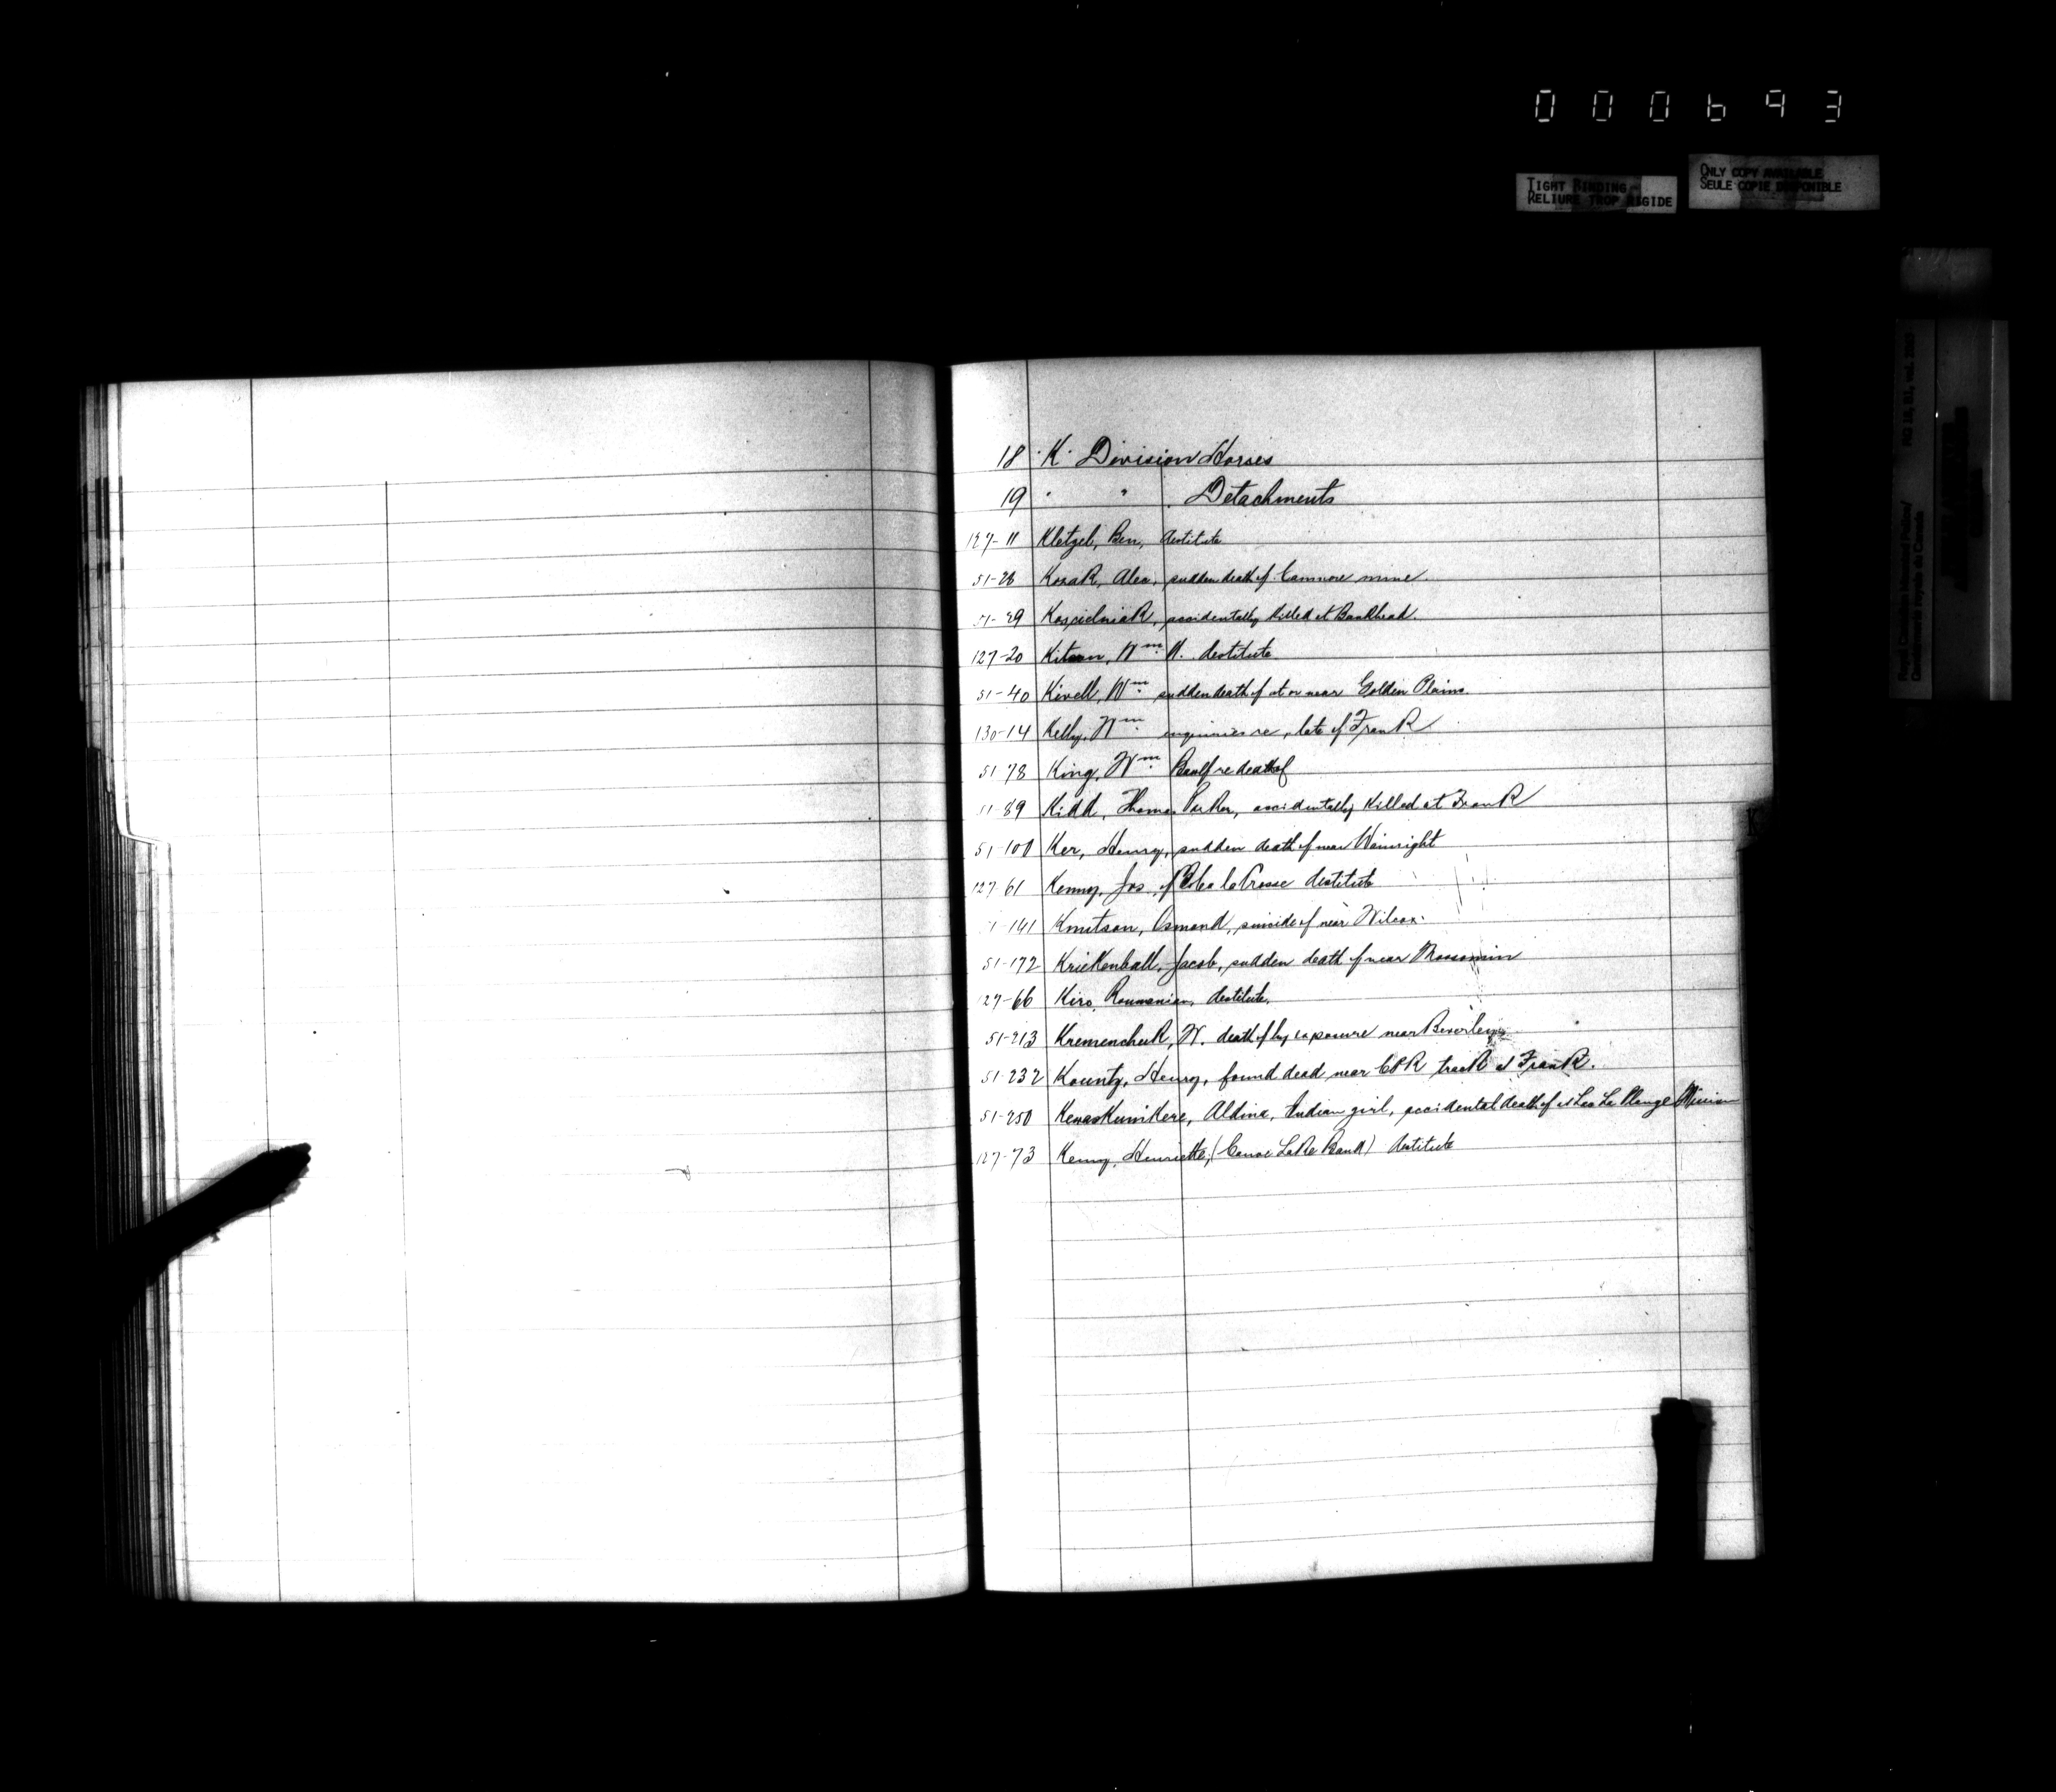 000693
TIGHT BINDING
RELIURE TROP RIGIDE
ONLY COPY AVAILABLE
SEULE COPIE DISPONIBLE
Royal Canadian Mounted Police/
Gendarmerie royale du Canada
18 "K" Division Horses
19 " " Detachments
127-11 Kletzel, Ben, destitute
51-28 Kozak, Alex, sudden death of Canmore mine.
51-29 Koscielniak, accidentally killed at Bankhead.
127-20 Kitson, Wm H. destitute
51-40 Kivell, Wm sudden death of at or near Golden Plains.
130-14 Kelly, Wm enquiries re, late of Frank
51-78 King, Wm Banff re death of
51-89 Kidd, Thomas Parker, accidentally killed at Frank
51-100 Ker, Henry, sudden death of near Wainright
127-61 Kenny, Jos. of destitute
51-141 Knutson, Osmond, suicide of near Wilcox.
51-172 Krickenball, Jacob, sudden death of near Moosomin
127-66 Kiro, Roumanian, destitute.
51-213 Kremencheck, W. death of by exposure near Beverley
51-232 Kountz, Henry, found dead near CPR track at Frank.
51-250 Kewaskunikere, Aldina, Indian girl, accidental death of at Lac La Plonge Mission
127-73 Kenny, Henriette, (Canoe Lake Band) destitute
K